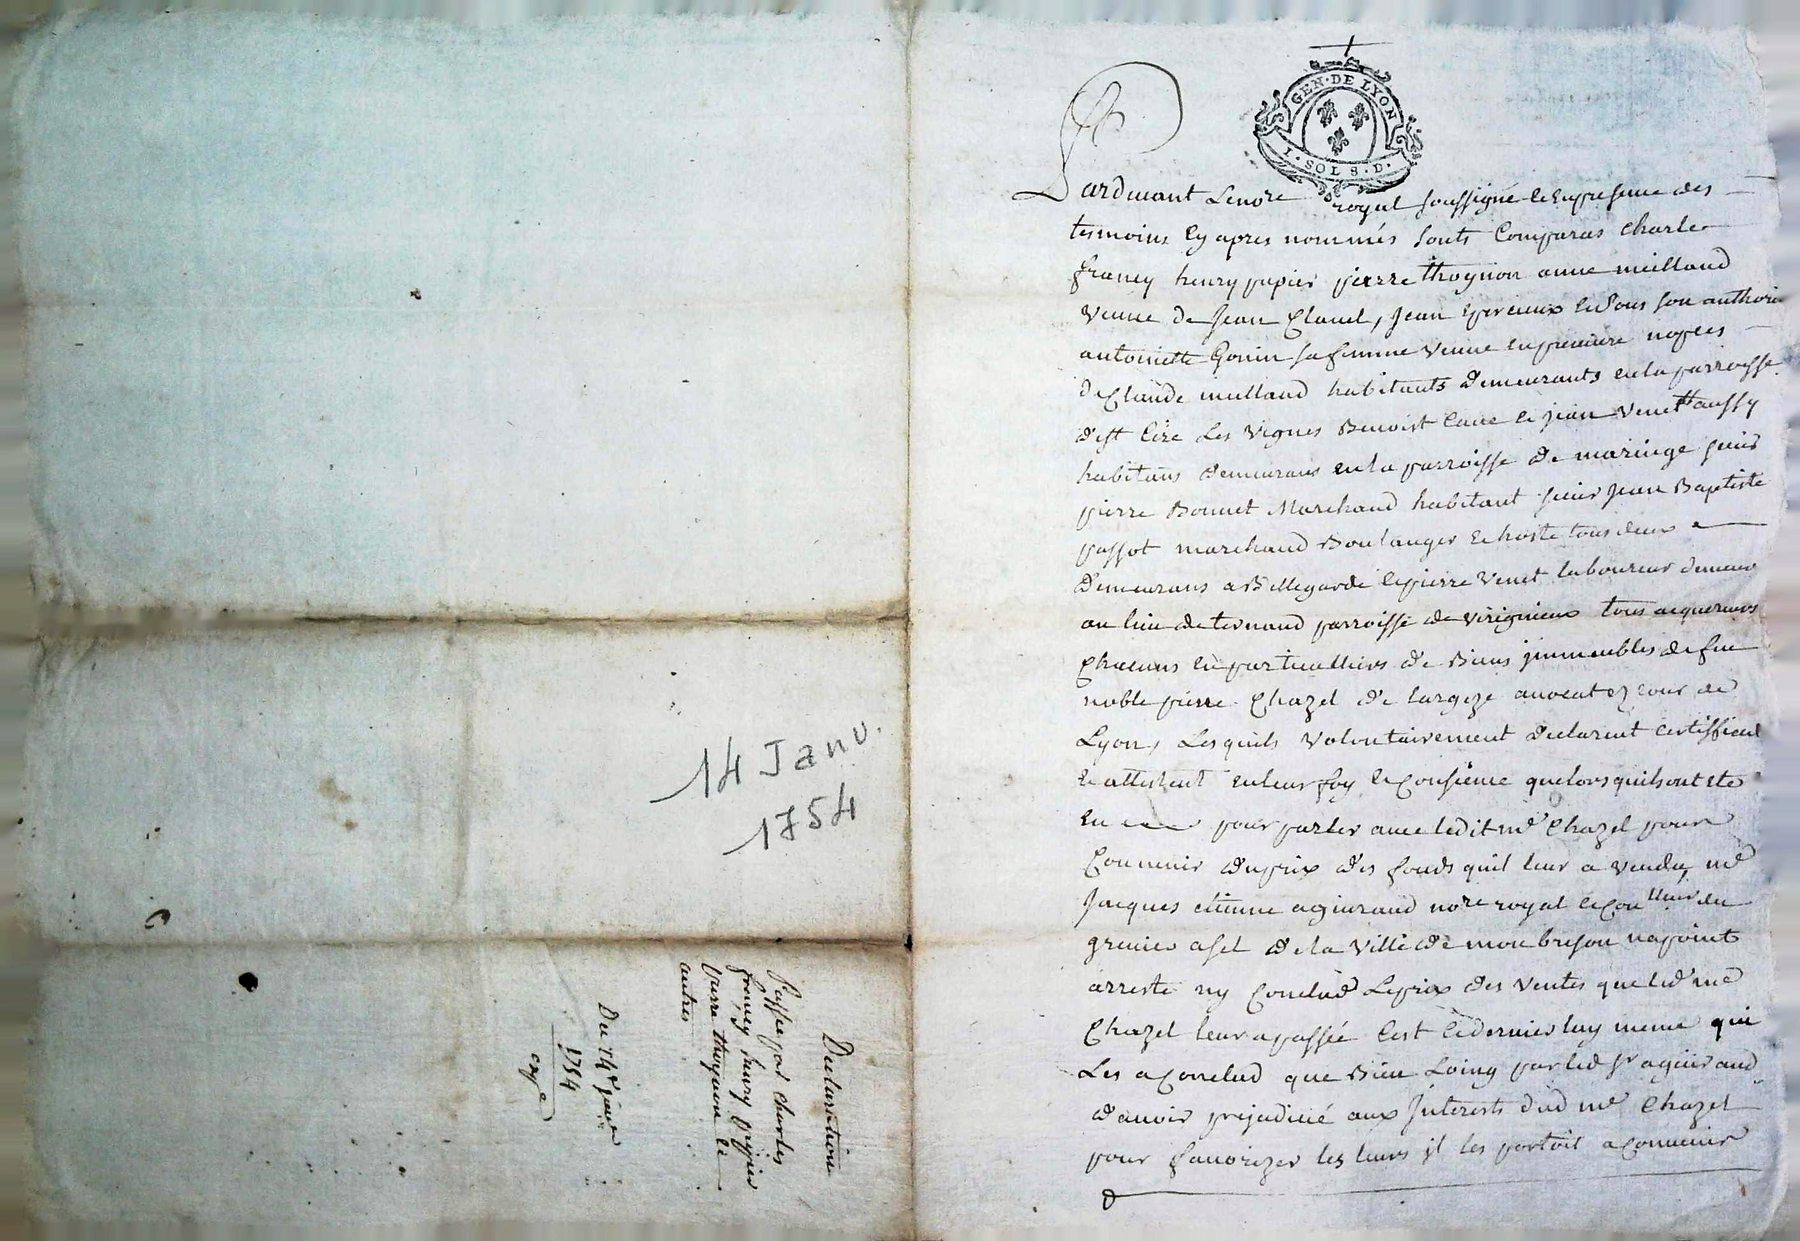 14 Janv.
1754
Declaration
Passée par charles
francy henry papier
pierre thoynon et
autres
Du 14e janer
1754
GEN·DE LYON
I·SOLS·D·
Pardevant Lenore royal soussigné et en presence des
tesmoins cy apres nommés sonts comparus charle
francy henry papier pierre thoynon anne meilland
veuve de jean clavel, jean epercieux et sous son authori
antoinette gonin sa femme veuve en premiere nopces
de claude meilland habitants demeurants en la parroisse
d'ist Cire Les vignes Benoist et jean venet aussy
habitans demeurans en la parroisse de maringe sieur
pierre Bonnet Marchand habitant sieur jean Baptiste
passot marchand Boulanger et hoste tous deux
demeurans a Bellegarde et pierre venet laboureur demeur
au lieu de ternand parroisse de virignieux tous acquereurs
chacuns en particulliers de Biens jmmeubles de feu
noble pierre chazel de avocat ez cour de
Lyon, Lesquels volontairement declarent certiffient
et attestent en leur foy et consience que lors quils ont ete
en pour parler avec ledit me chazel pour
convenir du prix des fonds quil leur a vendu, me
jacques etienne aguiraud nore royal et conller du
grenier a sel de la ville de monbrison na point
arresté ny conclud Le prix des ventes que led me
chazel leur a passée cest ce dernier luy meme qui
Les a conclud que Bien Loing par led sr aguiraud
d'avoir prejudicié aux jnterests dud me chazel
pour favorizer les leurs jl les portoit a convenir